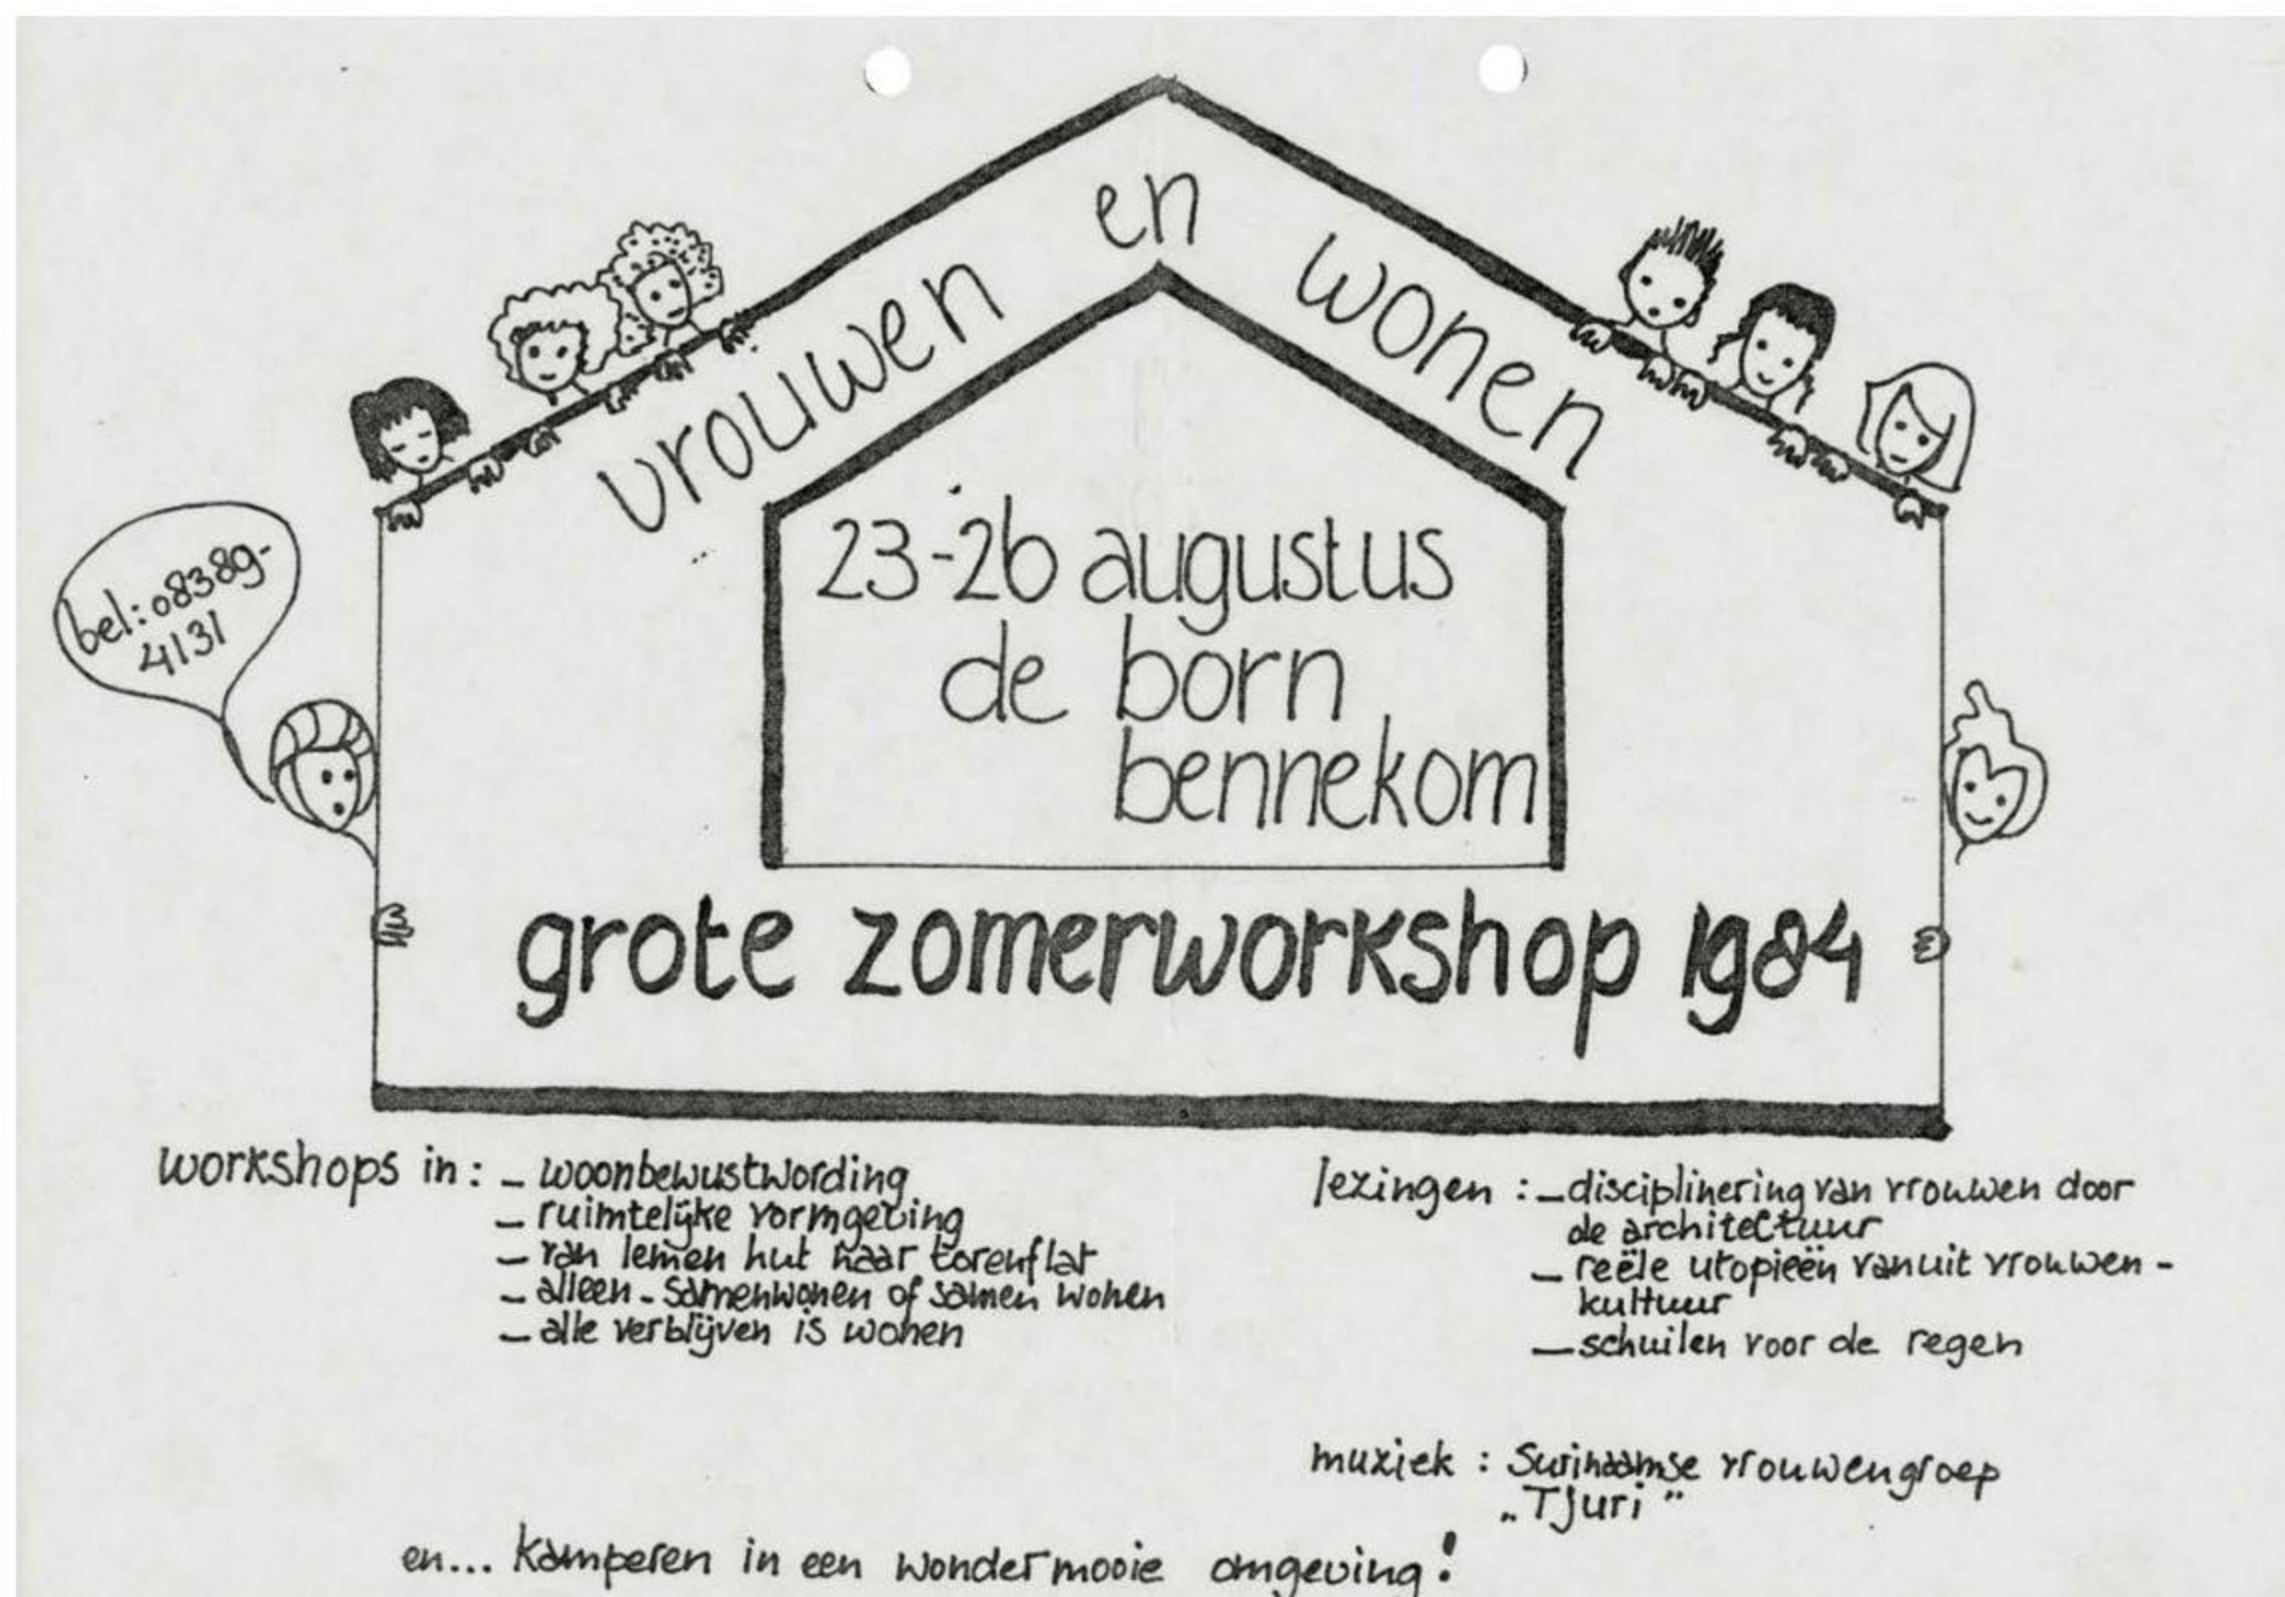 vrouwen en wonen
23-26 augustus
de born
bennekom
bel: 08389-
4131
grote zomerworkshop 1984
workshops in: – woonbewustwording
– ruimtelijke vormgeving
– van lemen hut naar torenflat
– alleen-samenwonen of samen wonen
– alle verblijven is wonen
lezingen : – disciplinering van vrouwen door
de architectuur
– reële utopieën vanuit vrouwen-
kultuur
– schuilen voor de regen
muziek : Surinaamse vrouwengroep
„Tjuri”
en... kamperen in een wondermooie omgeving!